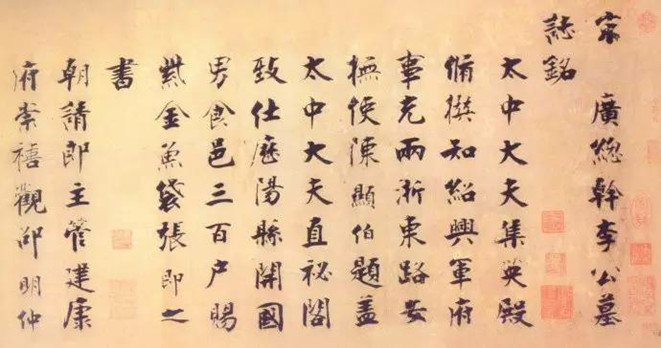 宋 廣總幹李公墓
誌銘
太中大夫集英殿
脩撰知紹興軍府
事充兩浙東路安
撫使陳顯伯題蓋
太中大夫直祕閣
致仕歷陽縣開國
男食邑三百户賜
紫金魚袋張即之
書
朝請郎主管建康
府崇禧觀邵明仲